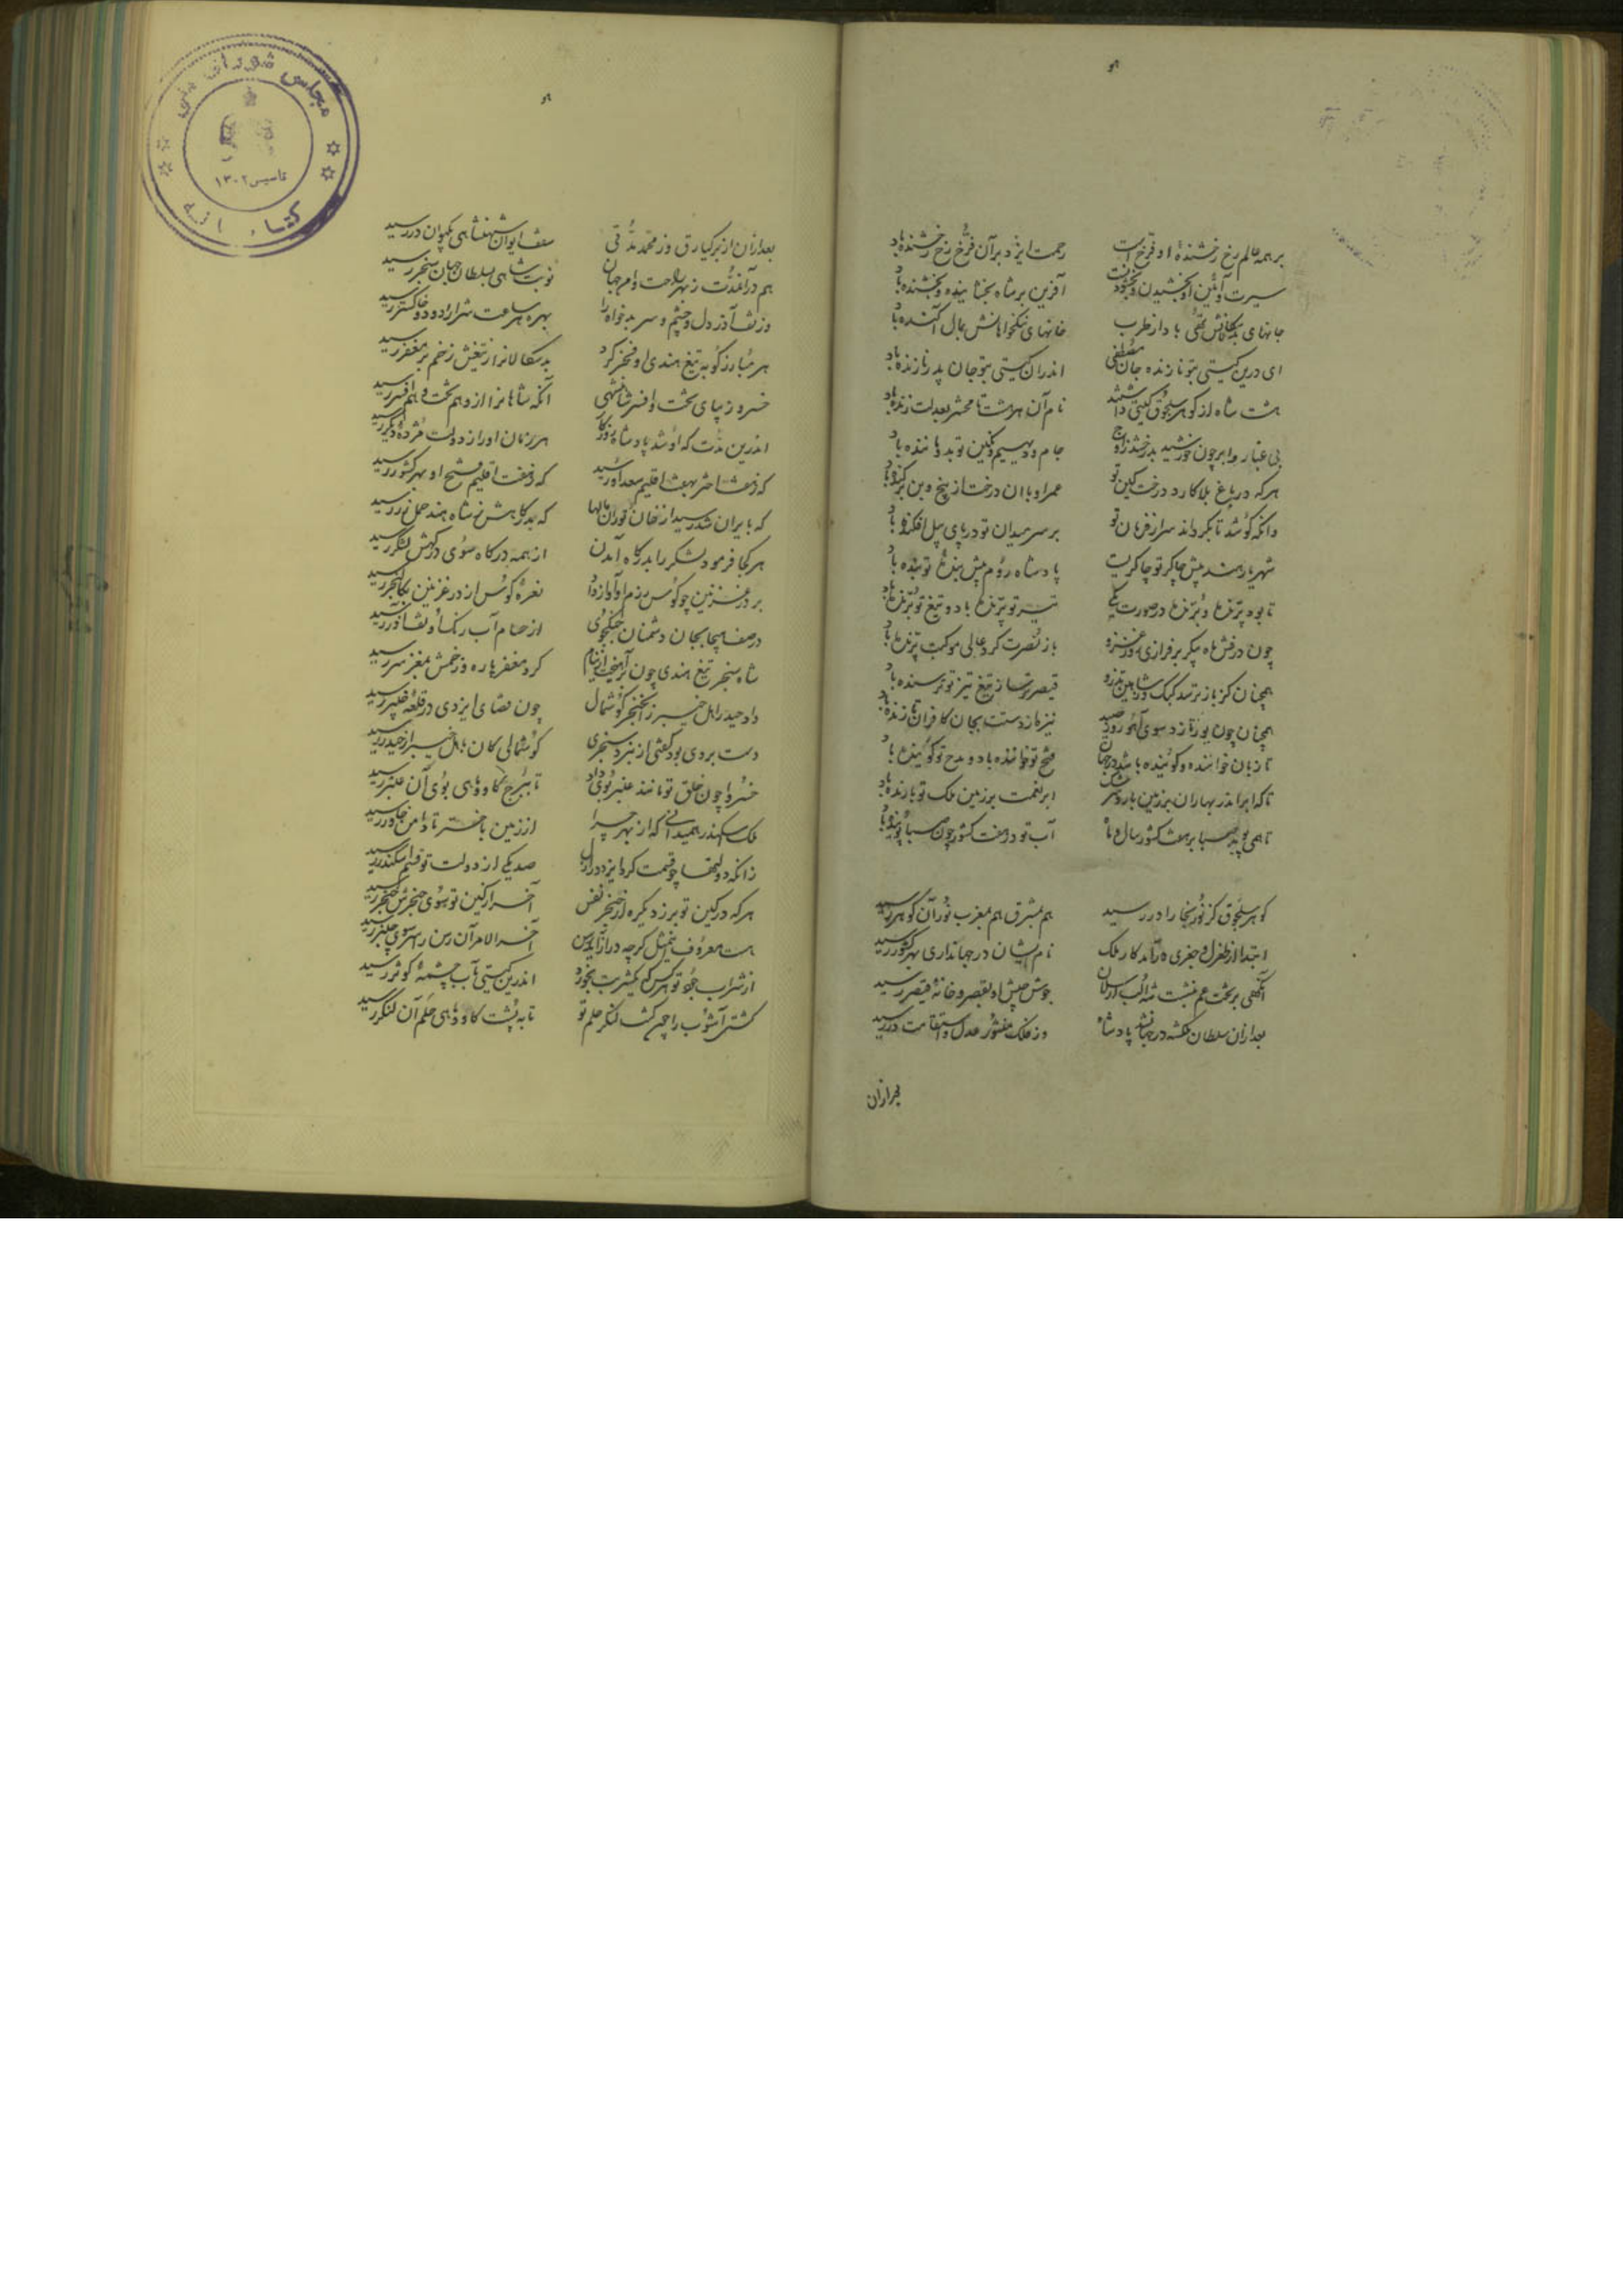 بر همه عالم رخ رخشندهٔ او فرّخ است رحمت ایزد بر آن فرّخ رخ رخشنده باد
سیرت و آئین او بخشیدن و بخشودنست آفرین بر شاه بخشاینده و بخشنده باد
جانهای باد از طرب خانهای نیکخواهانش بمال آکنده باد
ای درین گیتی بتو نازنده جان مصطفی اندران گیتی بتو جان پدر نازنده باد
هشت شاه از گوهر سلجوق گیتی داشتند نام آن هر هشت تا محشر بعدلت زنده باد
بی غبار و ابر چون خورشید بدرخشد ز اوج جام و دیهیم و نگین تو بدو ماننده باد
هر که در باغ بلا کارد درخت کین تو عمر او با آن درخت از بیخ و بن برکنده باد
وانکه کوشد تا بگرداند سر از فرمان تو بر سر میدان تو در پای پیل افکنده باد
شهریار هند پیش چاکر تو چاکریست پادشاه روم پیش بندهٔ تو بنده باد
تا بود پرنده و برنده در صورت یکی تیر تو پرنده باد و تیغ تو برنده باد
چون درفش ماه پیکر بر فرازی روز غزو باز نصرت گرد عالی موکبت پرنده باد
همچنان کز باز ترسد کبک و ز شاهین تذرو قیصر ترسا ز تیغ تیز تو ترسنده باد
همچنان چون یوز تازد سوی آهو روز صید نیزه از دستت بجان کافران تازنده باد
تا زبان خواننده و گوینده باشد در جهان فتح تو خواننده باد و مدح تو گوینده باد
تا که ابر اندر بهاران بر زمین بارد سرشک ابر نعمت بر زمین ملک تو بارنده باد
تا همی پوید صبا بر هفت کشور سال و ماه آب تو در هفت کشور چون صبا پوینده باد
گوهر سلجوق کز نور بخارا در رسید هم بمشرق هم بمغرب نور آن گوهر رسید
ابتدا از طغرل و جغری درآمد کار ملک نام ایشان در جهانداری بهر کشور رسید
آنگهی بر تخت عم بنشست شاه الب ارسلان جوش جیش او بقصر و خانهٔ قیصر رسید
بعد ازان سلطان ملکشه در جهان شد پادشاه وز ملک منشور عدل و استقامت در رسید
بعد ازان
بعد ازان از برکیارق وز محمد مدتی سقف ایوان شهنشاهی بکیوان در رسید
هم در آن مدت ز بهر راحت و امر جهان نوبت شاهی بسلطان جهان سنجر رسید
وز تف آذر دل و چشم و سر بدخواه را بهره هر ساعت شرار و دود و خاکستر رسید
هر مبارز کو به تیغ هندی او فخر کرد بدسگالانرا ز تیغش زخم بر مغفر رسید
خسرو زیبای تخت و افسر شاهنشهی آنکه شاهانرا ازو هم تخت و هم افسر رسید
اندرین مدت که او شد پادشاه روزگار هر زمان او را ز دولت مژدهٔ دیگر رسید
که ز هفت اقلیم فتح او بهر کشور رسید
که بایران شد رسید از خان توران مالها که بدرگاهش ز شاه هند حمل زر رسید
هر کجا فرمود لشکر را بدرگاه آمدن از همه درگاه سوی درگهش لشکر رسید
بر در غزنین چو کوس رزم او آواز داد نعرهٔ کوس از در غزنین بکالنجر رسید
در صف هیجا بجان دشمنان جنگجوی از حسام آب رنگ او تف آذر رسید
شاه سنجر تیغ هندی چون برآهخت از نیام کرد مغفر پاره و زخمش بمغز سر رسید
داد حیدر اهل خیبر را ز خنجر گوشمال چون قضای ایزدی در قلعهٔ خیبر رسید
دست بردی بود گفتی از نبرد سنجری گوشمالی کان باهل خیبر از حیدر رسید
خسروا چون خلق تو مانند عنبر بوی داد تا ببرج گاو و ماهی بوی آن عنبر رسید
ملک اسکندر همیدانی که از بهر چرا از زمین باختر تا دامن خاور رسید
زانکه دولتها چو قسمت کرد ایزد در ازل صد یکی از دولت تو قسم اسکندر رسید
هر که در کین تو برزد یکره از خنجر نفس آخر از کین تو سوی حنجرش خنجر رسید
هست معروف این مثل گرچه دراز آید رسن آخر الامر آن رسن را سر سوی چنبر رسید
از شراب جود تو هر کس که یکشربت بخورد اندرین گیتی بآب چشمهٔ کوثر رسید
کشتی آشوب را چون گشت لنگر حلم تو تا به پشت گاو و ماهی حلم آن لنگر رسید
مجلس شورای ملی
تاسیس ۱۳۰۲
کتابخانه